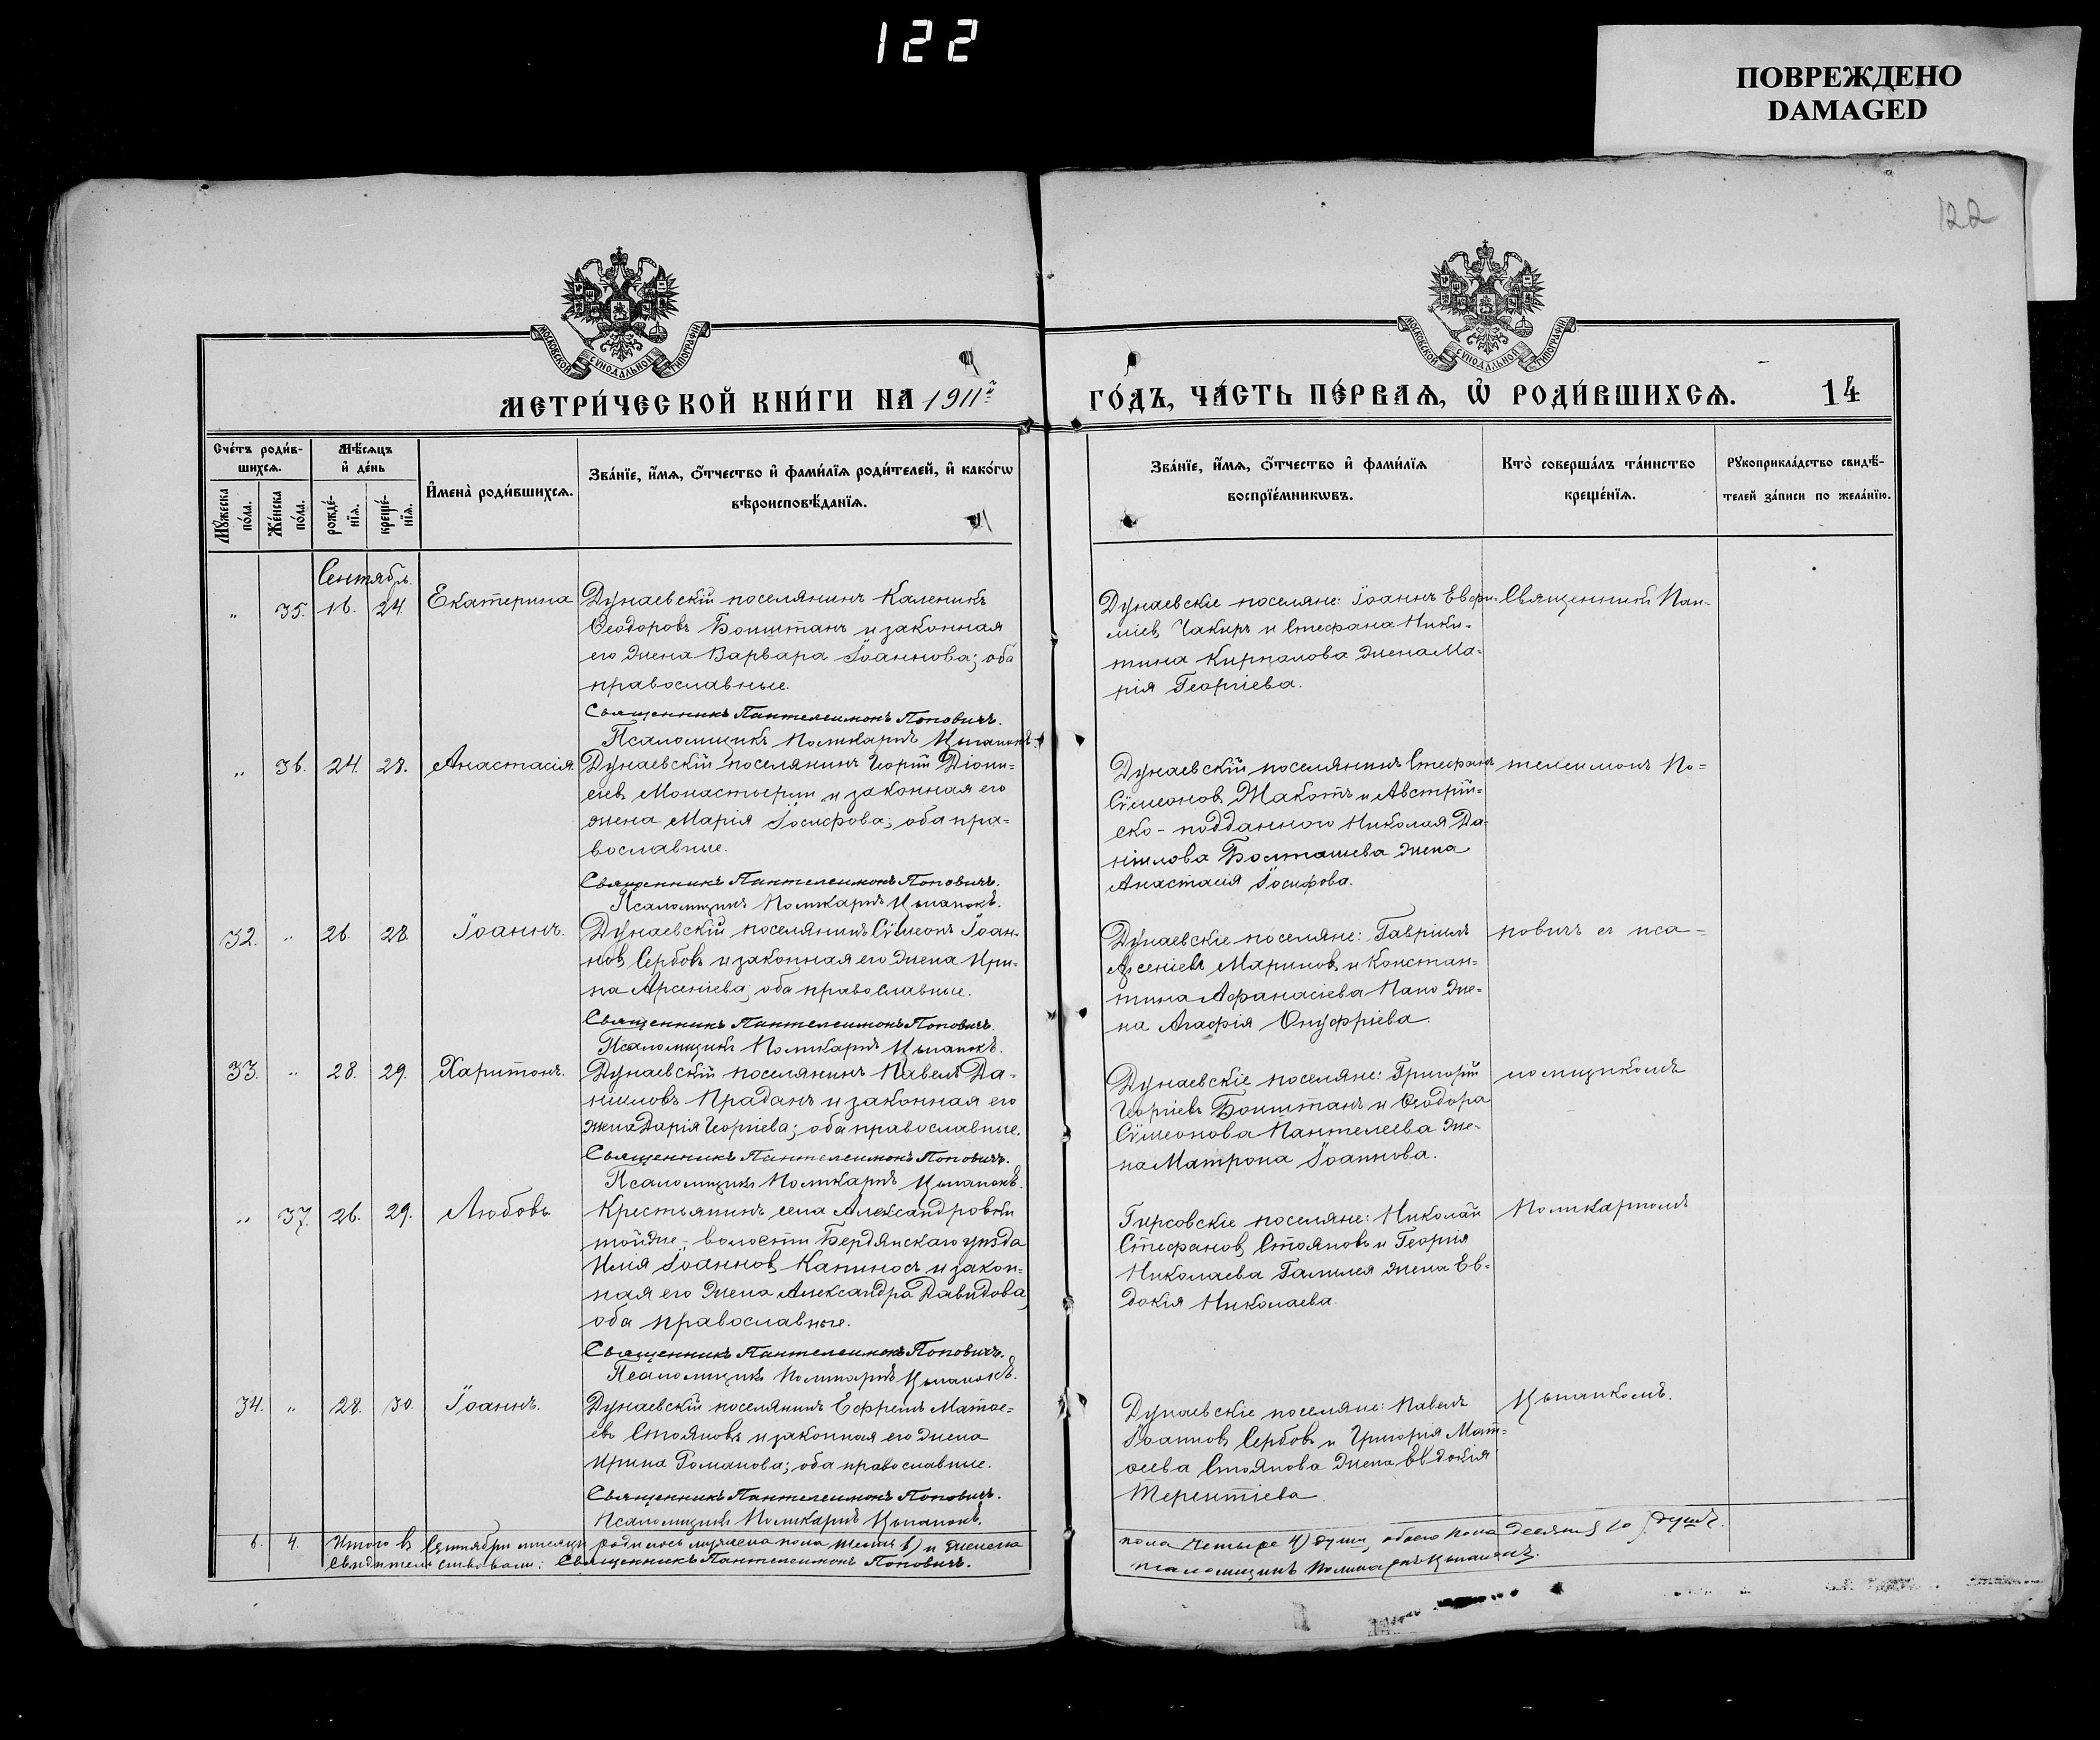 122
ПОВРЕЖДЕНО
DAMAGED
122
МОСКОВСКОЙ СѴНОДАЛЬНОЙ ТИПОГРАФІИ
МОСКОВСКОЙ СѴНОДАЛЬНОЙ ТИПОГРАФІИ
МЕТРИ́ЧЕСКОЙ КНИ́ГИ НА 1911й
ГО́ДЪ, ЧА́СТЬ ПЕ́РВАѦ, Ѡ҆ РОДИ́ВШИХСѦ. 14
Сче́тъ роди́в-
шихсѧ.
Мꙋ́жеска по́ла.
Же́нска по́ла.
Мѣ́сѧцъ
и҆ де́нь
рожде́-
нїѧ.
креще́-
нїѧ.
И҆мена̀ роди́вшихсѧ.
Зва́нїе, и҆́мѧ, ѻ҆́тчество и҆ фами́лїѧ роди́телей, и҆ како́гѡ
вѣроисповѣ́данїѧ.
Зва́нїе, и҆́мѧ, ѻ҆́тчество и҆ фами́лїѧ
воспрїе́мникѡвъ.
Кто̀ соверша́лъ та́инство
креще́нїѧ.
Рꙋкоприкла́дство свидѣ́-
телей за́писи по жела́нїю.
Сентябрь.
" 35. 16. 24. Екатерина
Дунаевскій поселянинъ Каленикъ
Ѳеодоровъ Боиштанъ и законная
его жена Варвара Іоаннова; оба
православные.
Священникъ Пантелеимонъ Поповичъ.
Псаломщикъ Поликарпъ Цыганокъ.
Дунаевскіе поселяне: Іоаннъ Евфи-
міев Чакиръ и Стефана Ники-
тина Кирпалова жена Ма-
рія Георгіева.
Священникъ Пан-
" 36. 24. 28. Анастасія.
Дунаевскій поселянинъ Георгій Діони-
сіевъ Монастырли и законная его
жена Марія Іосифова; оба пра-
вославные.
Священникъ Пантелеимонъ Поповичъ.
Псаломщикъ Поликарпъ Цыганокъ.
Дунаевскій поселянинъ Стефанъ
Сѵмеонов Жакотъ и Австрій-
ско-подданного Николая Да-
ніилова Болташева жена
Анастасія Іосифова.
телеимонъ По-
32. " 26. 28. Іоаннъ.
Дунаевскій поселянинъ Сѵмеонъ Іоан-
новъ Сербовъ и законная его жена Ири-
на Арсеніева; оба православные.
Священникъ Пантелеимонъ Поповичъ.
Псаломщикъ Поликарпъ Цыганокъ.
Дунаевскіе поселяне: Гавріилъ
Арсеніевъ Мариновъ и Констан-
тина Афанасіева Пано же-
на Агафія Онуфріева.
повичъ съ пса-
33. " 28. 29. Харитонъ.
Дунаевскій поселянинъ Павелъ Да-
ниловъ Праданъ и законная его
жена Дарія Георгіева; оба православные.
Священникъ Пантелеимонъ Поповичъ.
Псаломщикъ Поликарпъ Цыганокъ.
Дунаевскіе поселяне: Григорій
Георгіевъ Боиштанъ и Ѳеодора
Сѵмеонова Пантелеева же-
на Матрона Іоаннова.
ломщикомъ
" 37. 26. 29. Любовь
Крестьянинъ села Александровки
тойже-волости Бердянскаго уѣзда
Илія Іоаннов Капиносъ и закон-
ная его жена Александра Давидова,
оба православные.
Священникъ Пантелеимонъ Поповичъ.
Псаломщикъ Поликарпъ Цыганокъ.
Гирсовскіе поселяне: Николай
Стефанов Стояновъ и Георгія
Николаева Галилея жена Ев-
докія Николаева.
Поликарпомъ
34. " 28. 30. Іоаннъ.
Дунаевскій поселянинъ Ефремъ Матѳе-
евъ Стояновъ и законная его жена
Ирина Романова; оба православные.
Священникъ Пантелеимонъ Поповичъ.
Псаломщикъ Поликарпъ Цыганокъ.
Дунаевскіе поселяне: Павелъ
Іоаннов Сербовъ и Григорія Мат-
ѳеева Стоянова жена Евдокія
Терентіева
Цыганкомъ.
6. 4. Итого въ Сентябрѣ мѣсяцѣ родилось мужеска пола шесть 6) и женска
пола четыре 4) души, обоего пола десять 10) душъ.
Свидѣтельствовали: Священникъ Пантелеимонъ Поповичъ.
псаломщикъ Поликарпъ Цыганокъ.